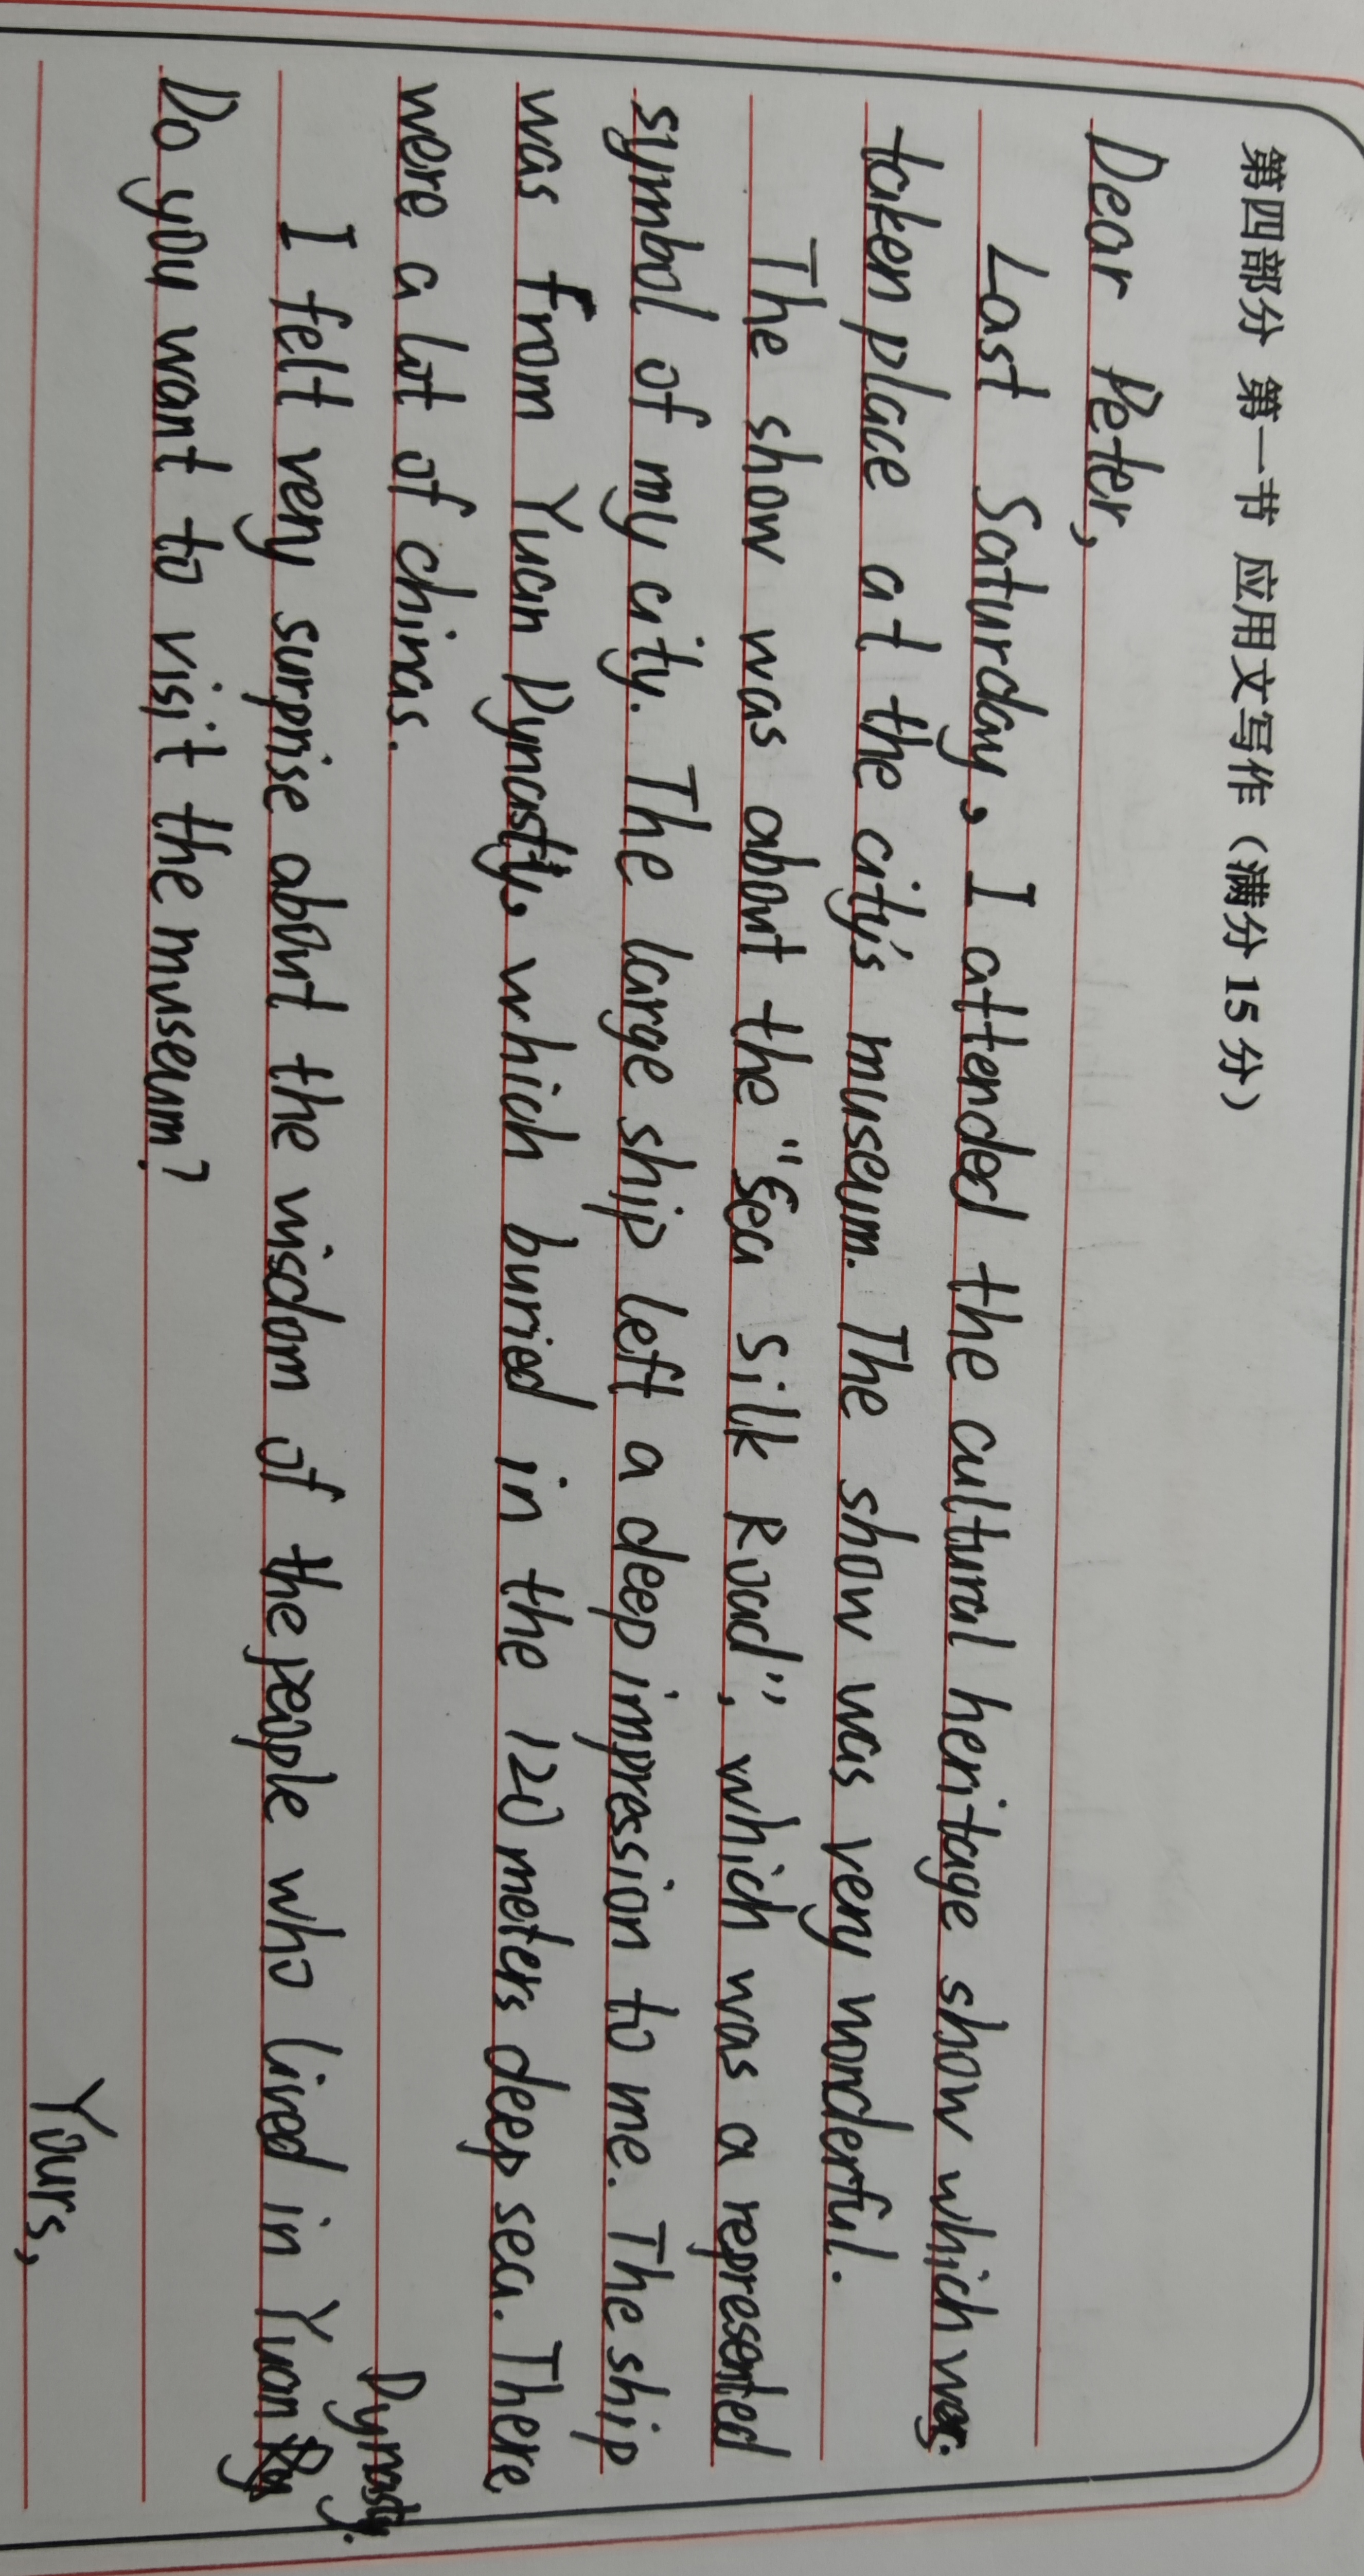 第四部分 第一节 应用文写作（满分 15 分）
Dear Peter,
Last Saturday, I attended the cultural heritage show which was
taken place at the city's museum. The show was very wonderful.
The show was about the "Sea Silk Road", which was a represented
symbol of my city. The large ship left a deep impression to me. The ship
was from Yuan Dynasty, which buried in the 120 meters deep sea. There
were a lot of chinas.
I felt very surprise about the wisdom of the people who lived in Yuan
Dynasty.
Do you want to visit the museum?
Yours,